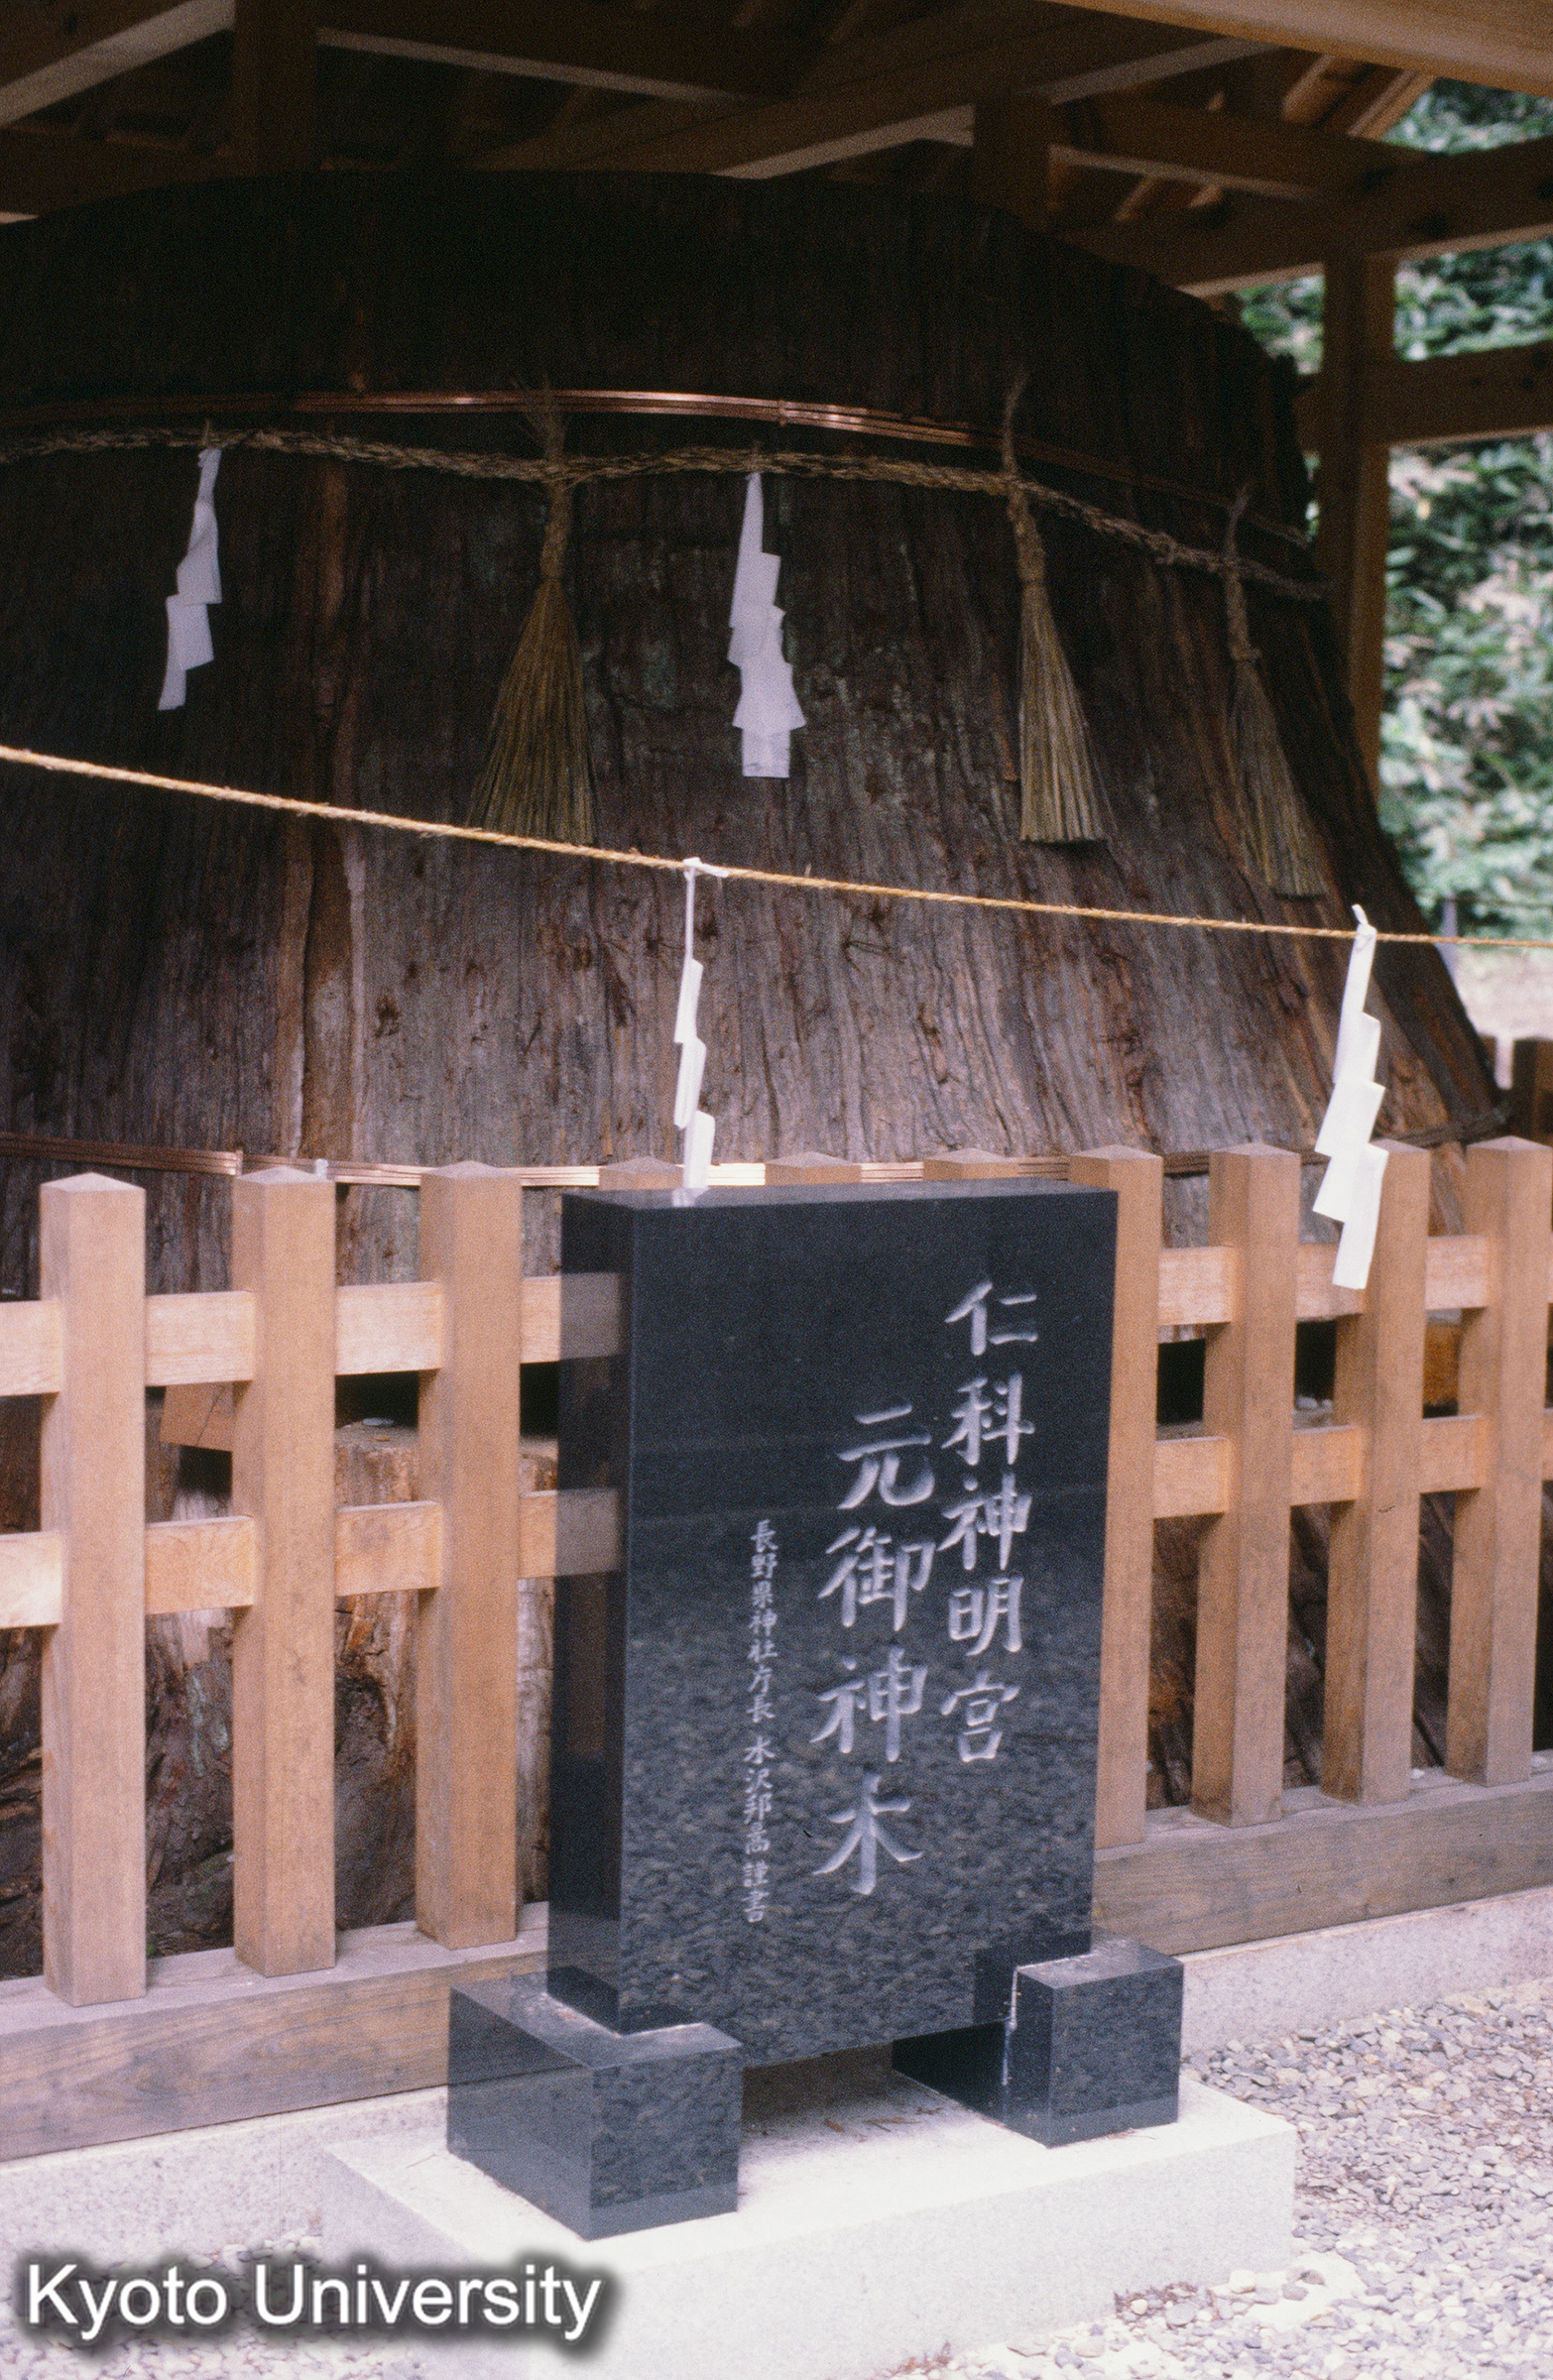 仁科神明宮
元御神木
長野県神社庁長 水沢邦高謹書
Kyoto University